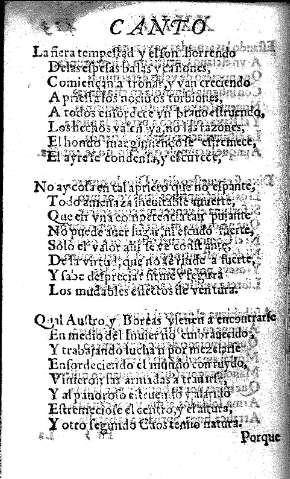 CANTO
La fiera tempestad y el son horrendo
De las espesas balas y cañones,
Comiençan a tronar, y van creciendo
A priessa los nociuos turbiones,
A todos ensordece vn brauo estruendo,
Los hechos valen ya, no las razones,
El hondo mar gimiendo se estremece,
El ayre se condensa, y escurece,
No ay cosa en tal aprieto que no espante,
Todo amenaza ineuitable muerte,
Que en vna competencia tan pujante
No puede auer lugar, ni escudo fuerte,
Solo el valor alli se ve constante,
De la virtud, que no se rinde a suerte,
Y sabe despreciar firme y segura
Los mudables efectos de ventura.
Qual Austro, y Boreas vienen a encontrarse
En medio del Inuierno embrauecido,
Y trabajando luchan por mezclarse
Ensordeciendo el mundo con ruydo,
Vinieron las armadas a trauarse,
Y al pauoroso estruendo y
Estremeciose el centro, y el altura,
Y otro segundo Chaos temio natura.
Porque